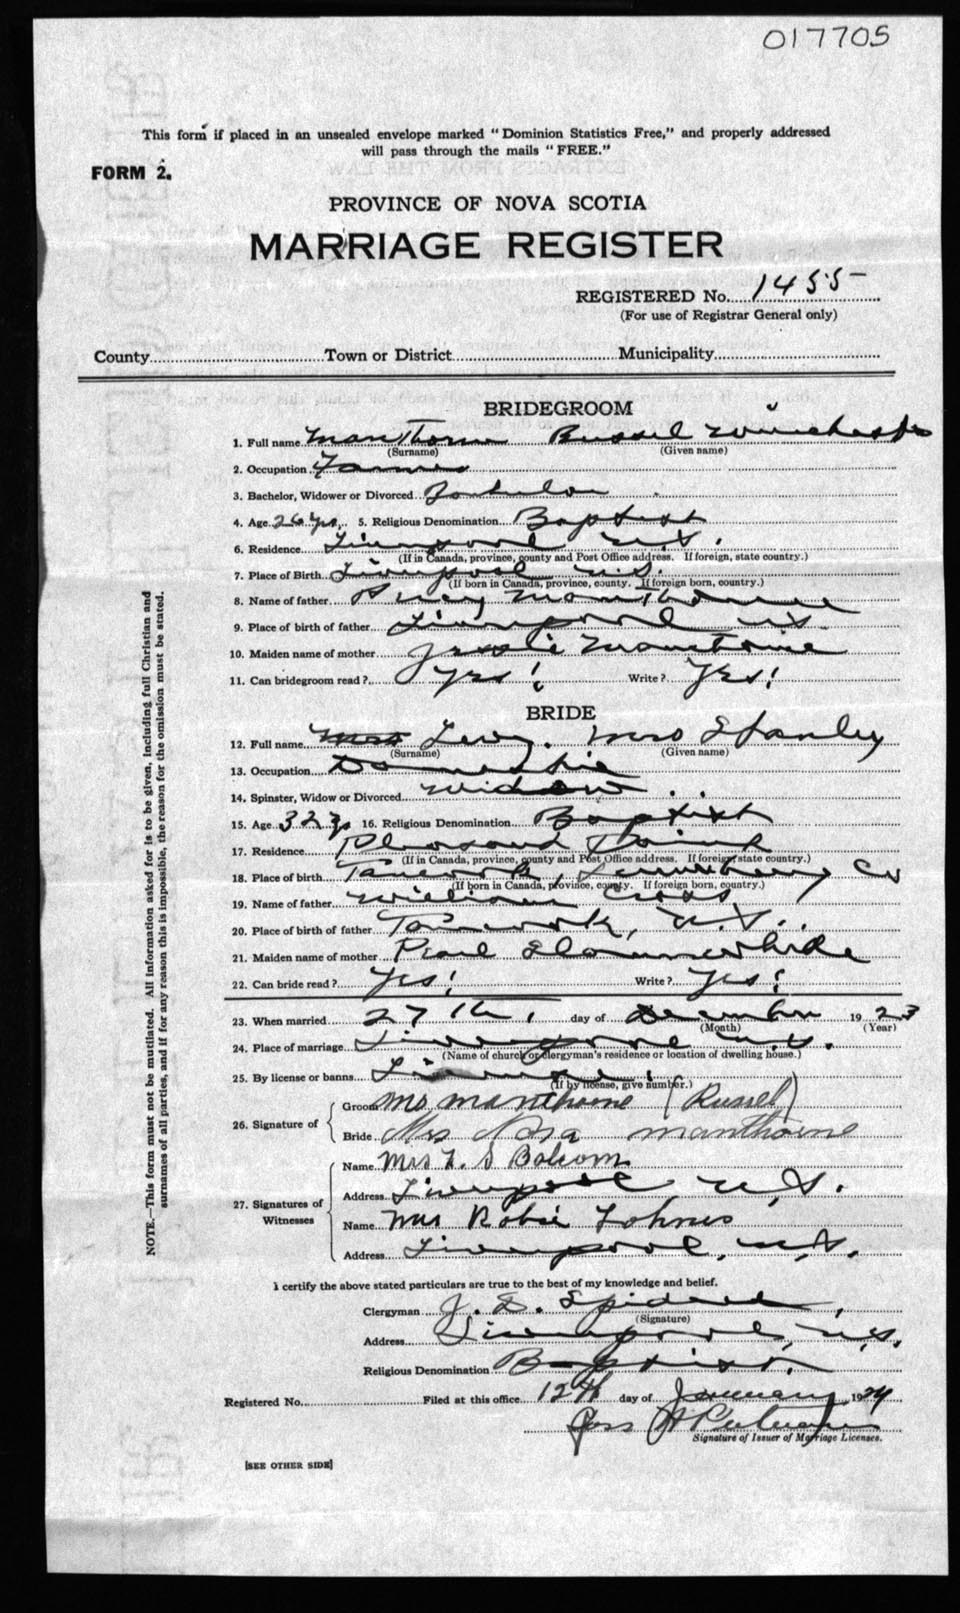 017705
This form if placed in an unsealed envelope marked "Dominion Statistics Free," and properly addressed
will pass through the mails "FREE."
FORM 2.
PROVINCE OF NOVA SCOTIA
MARRIAGE REGISTER
REGISTERED No. 1455
(For use of Registrar General only)
County Town or District Municipality
BRIDEGROOM
1. Full name Manthorne Russel Winchester
(Surname) (Given name)
2. Occupation
3. Bachelor, Widower or Divorced
4. Age 26 yrs. 5. Religious Denomination Baptist
6. Residence Liverpool N.S.
(If in Canada, province, county and Post Office address. If foreign, state country.)
7. Place of Birth Liverpool N.S.
(If born in Canada, province, county. If foreign born, country.)
8. Name of father Manthorne
9. Place of birth of father Liverpool N.S.
10. Maiden name of mother Jessie Manthorne
11. Can bridegroom read? Yes! Write? Yes!
BRIDE
12. Full name Mrs Levy. Mrs Stanley
(Surname) (Given name)
13. Occupation Domestic
14. Spinster, Widow or Divorced Widow
15. Age 32 yrs 16. Religious Denomination Baptist
17. Residence Pleasant Point
(If in Canada, province, county and Post Office address. If foreign state country.)
18. Place of birth Tancook, Lunenburg Co
(If born in Canada, province, county. If foreign born, country.)
19. Name of father William Cross
20. Place of birth of father Tancook, N.S.
21. Maiden name of mother Pearl Slaunwhite
22. Can bride read? Yes! Write? Yes!
23. When married 27th, day of December 1923
(Month) (Year)
24. Place of marriage Liverpool N.S.
(Name of church or clergyman's residence or location of dwelling house.)
25. By license or banns License.
(If by license, give number.)
26. Signature of
Groom Mr Manthorne (Russel)
Bride Mrs Nora Manthorne
27. Signatures of Witnesses
Name Mrs F. S Bolcom
Address Liverpool N.S.
Name Mrs Robie Lohnes
Address Liverpool, N.S.
I certify the above stated particulars are true to the best of my knowledge and belief.
Clergyman J. D. Spidell,
(Signature)
Address Liverpool, N.S.
Religious Denomination Baptist.
Registered No. Filed at this office 12th day of January 1924
Signature of Issuer of Marriage Licenses.
[SEE OTHER SIDE]
NOTE.—This form must not be mutilated. All information asked for is to be given, including full Christian and
surnames of all parties, and if for any reason this is impossible, the reason for the omission must be stated.